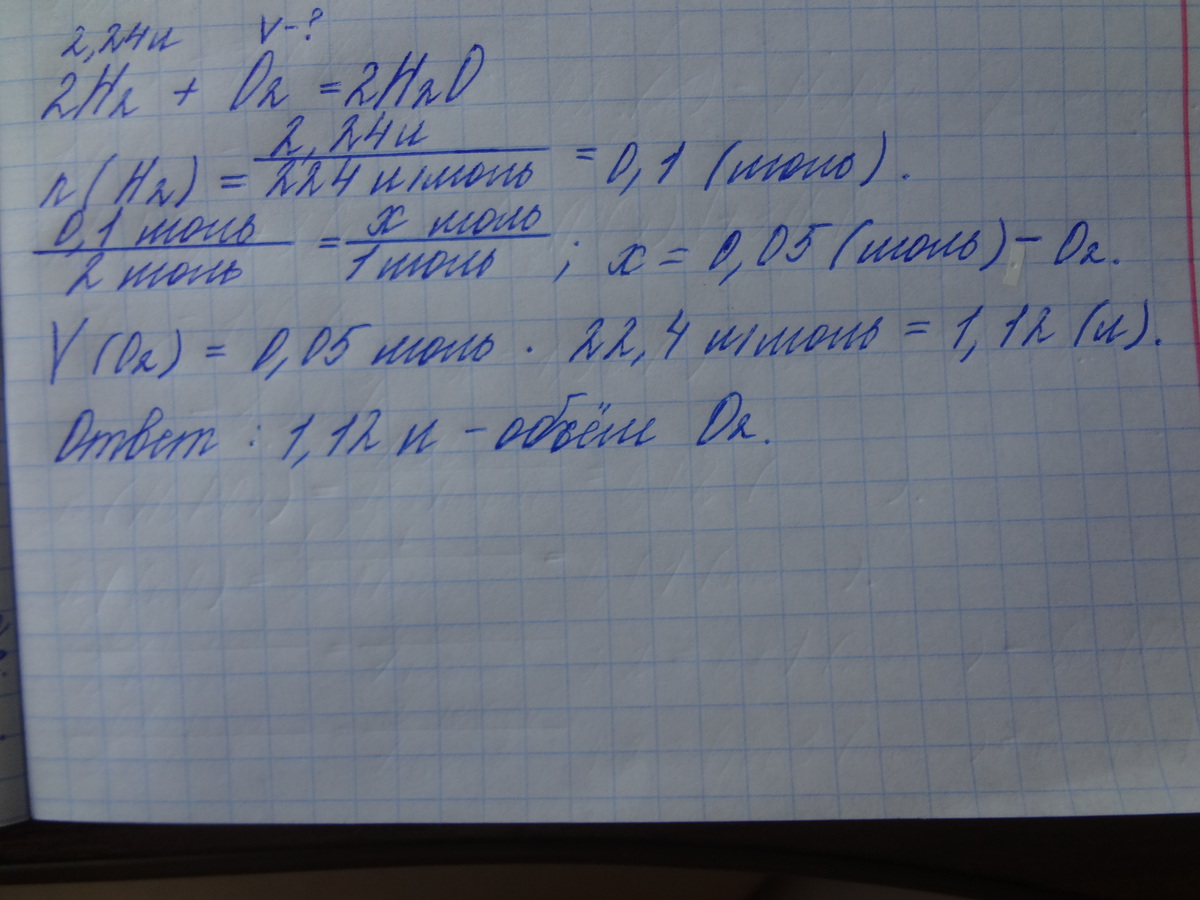 2,24л V-?
2H₂ + O₂ = 2H₂O
n(H₂) = 2,24л / 224 л/моль = 0,1 (моль).
0,1 моль / 2 моль = x моль / 1 моль ; x = 0,05 (моль) - O₂.
V(O₂) = 0,05 моль · 22,4 л/моль = 1,12 (л).
Ответ : 1,12 л - объём O₂.